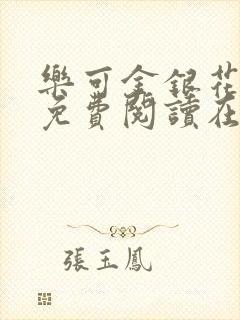 樂可金銀花
免費閱讀在
張玉鳳